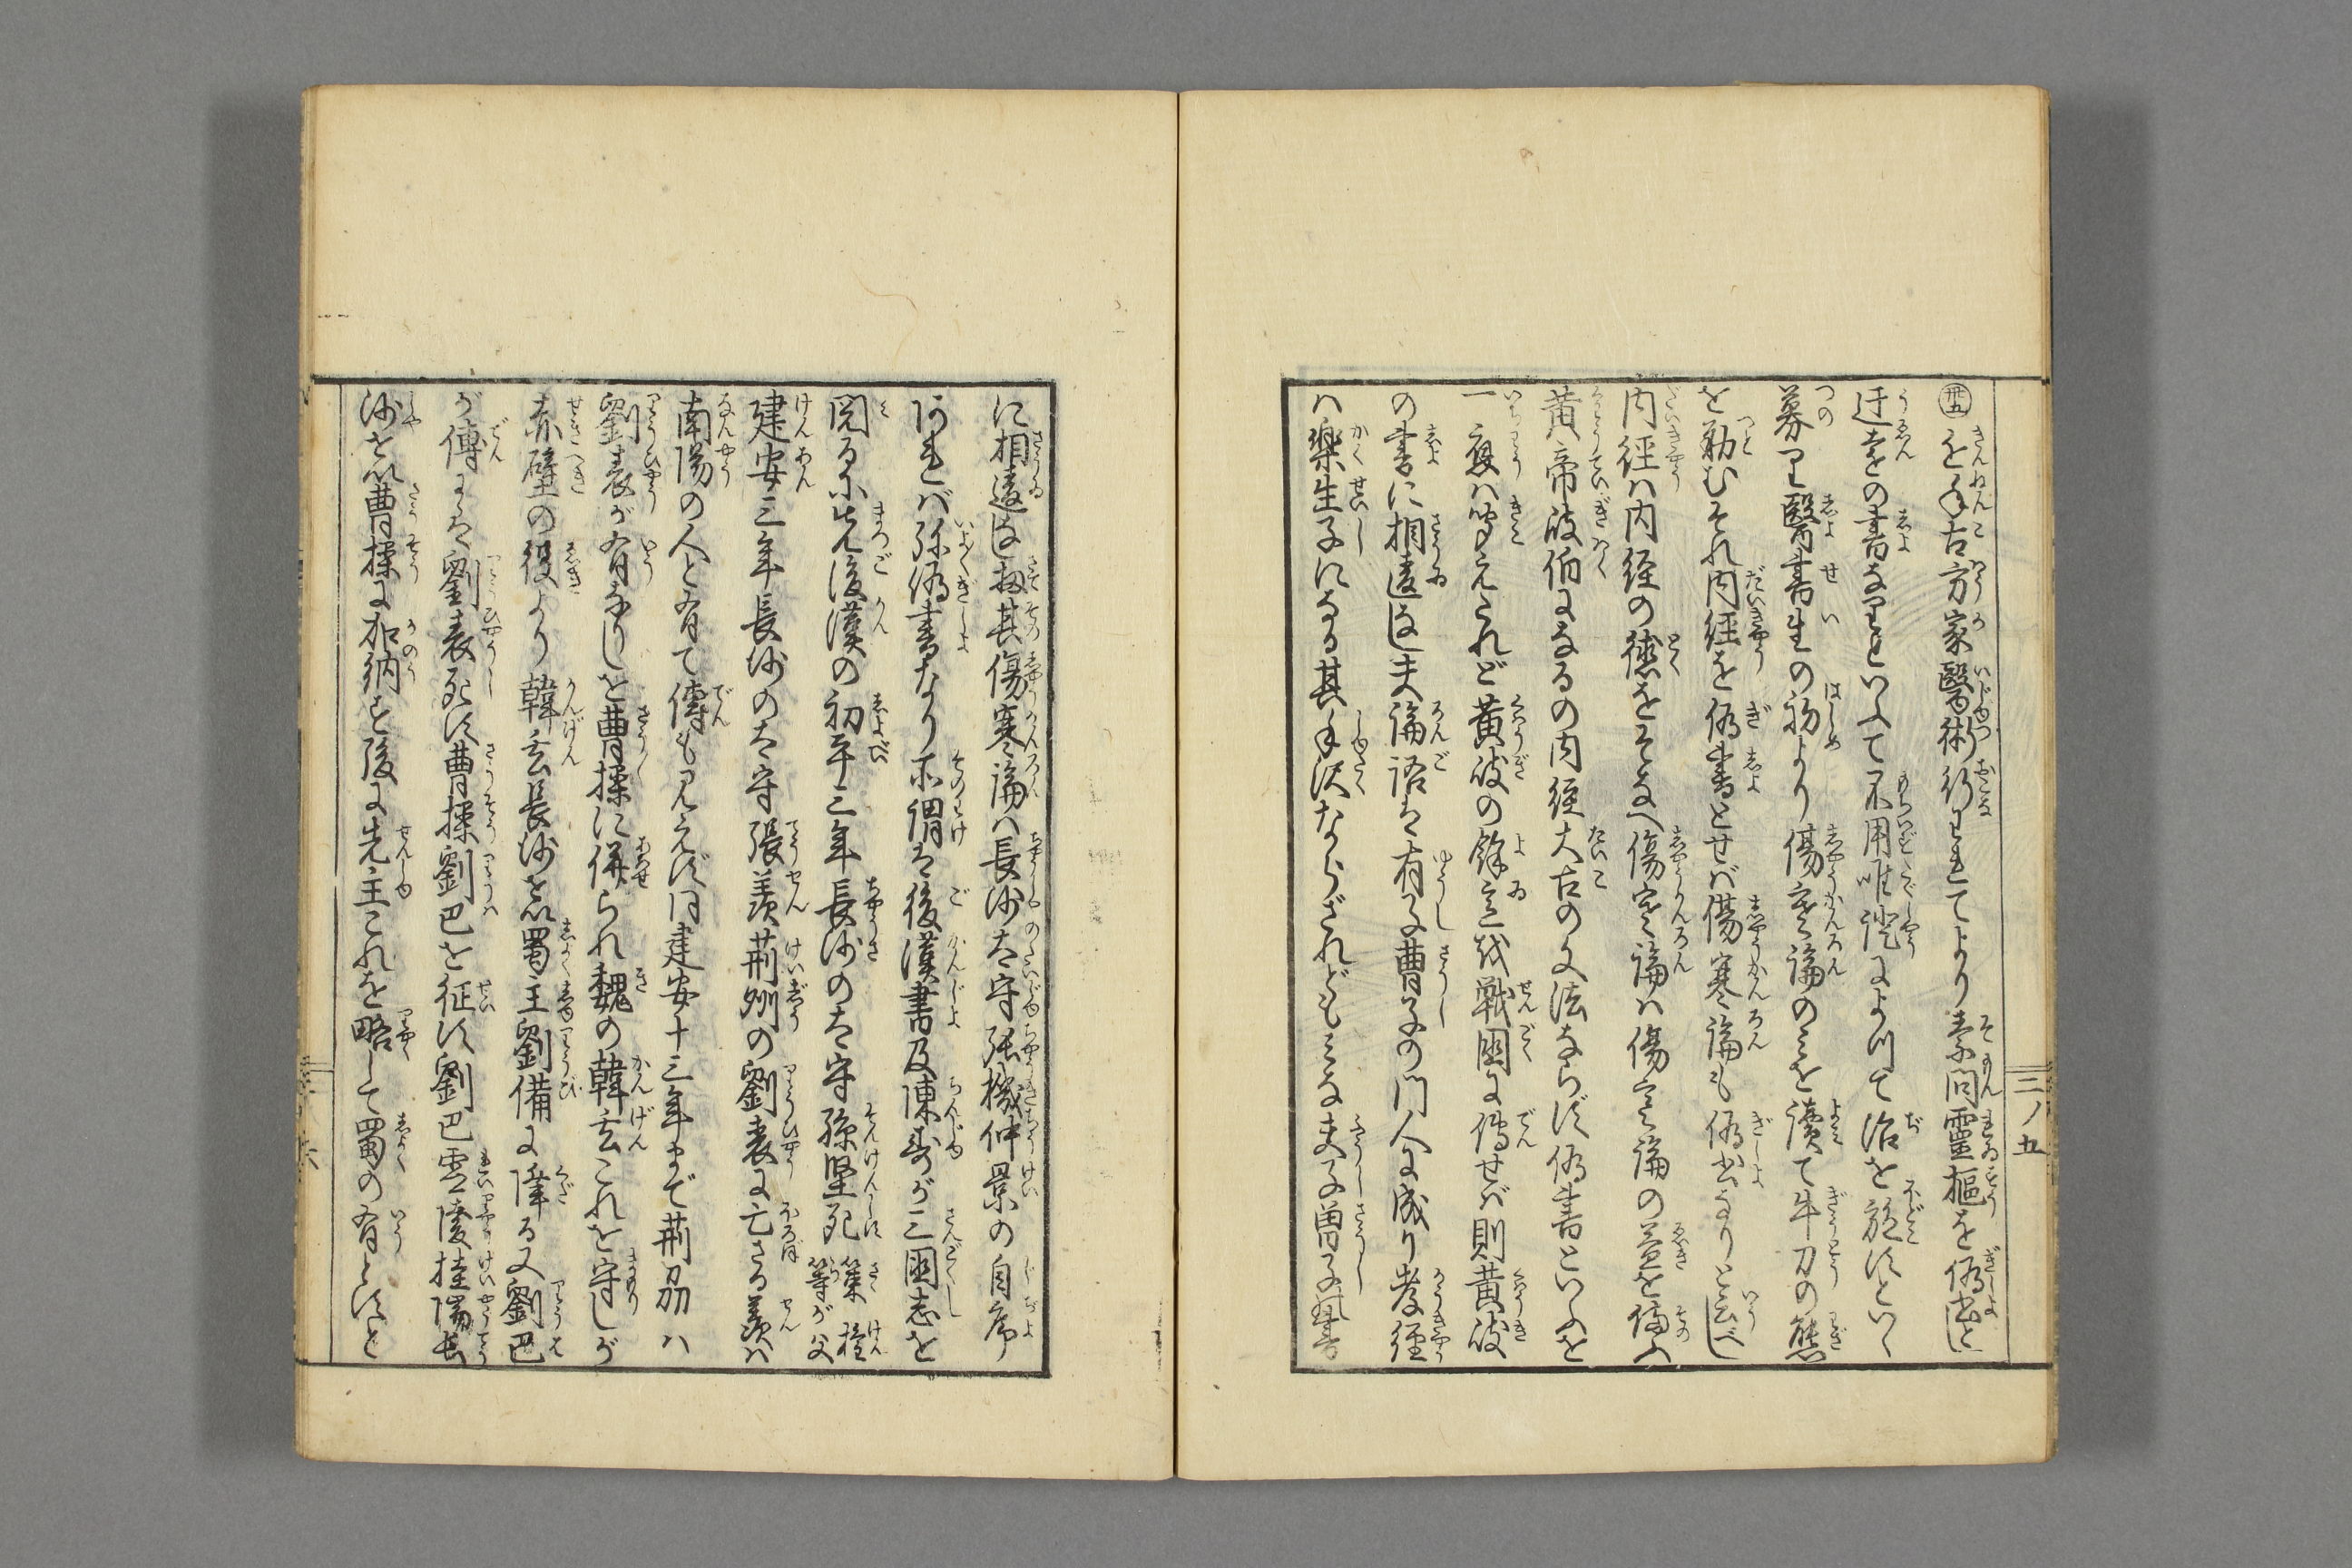 近年古方家醫術行れてより素問靈樞を偽書と
迂遠の書なりといふて不用唯證によつて治を施すといへ
募り醫書生の初より傷寒論のみを讀て牛刀の態
を勤むそれ内経を偽書とせば傷寒論も偽書なりと云べし
内經は内経の徳をそなへ傷寒論は傷寒論の益を備ふ
黄帝岐伯になるの内経大古の文法ならず偽書といふを
一應は聞えたれど黄岐の餘意戦國に傳せば則黄岐
の書に相違なし夫論語は有子曹子の門人に成り孝經
は樂生子になる其手沢ならざれどもみな夫子曽子の書
に相違なし扨其傷寒論は長沙太守張機仲景の自序
あれば弥偽書なり所謂は後漢書及陳寿が三國志を
閲るに先後漢の初平三年長沙の太守孫堅死策權等が父
建安三年長沙の太守張羨荊州の劉表に亡さる羨は
南陽の人と有て傳も見えず同建安十三年まで荊刕は
劉表が有なりしを曹操に併られ魏の韓玄これを守しが
赤壁の役より韓玄長沙を以蜀主劉備に降る又劉巴
が傳には劉表死す曹操劉巴を征す劉巴零陵桂陽長
沙を以曹操に加納を後に先主これを略して蜀の有とすと
三ノ五